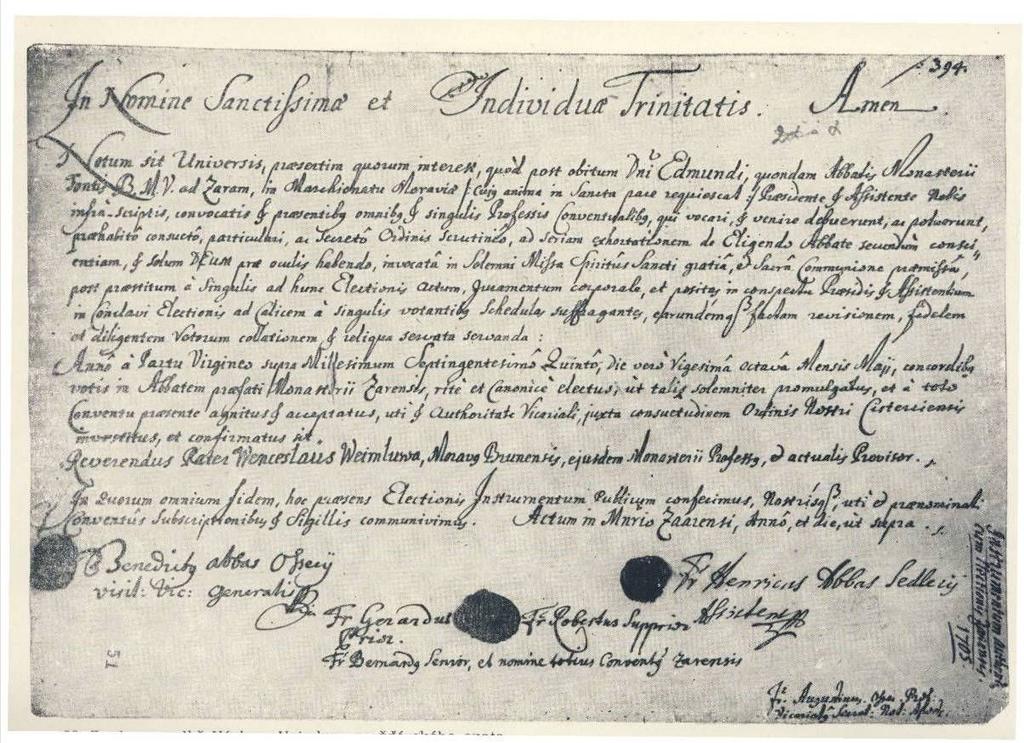 394.
In Nomine Sanctissimæ et Individuæ Trinitatis. Amen
Notum sit Universis, præsertim quorum interest, quòd post obitum Dni Edmundi, quondam Abbatis Monasterii
Fontis B. M. V. ad Zaram, in Marchionatu Moraviæ /: Cuig anima in Sancta pace requiescat :/ Præsidente & Assistente Nobis
infrà scriptis, convocatis & præsentibg omnibg & singulis Professis Conventualibg, qui vocari, & venire debuerunt, ac potuerunt,
præhabitô consuetô, particulari, ac Secretô Ordinis Scrutiniô, ad seriam exhortationem de Eligendo Abbate secundùm consci"
entiam, & solum DEUM præ oculis habendo, invocatâ in Solemni Missa Spiritûs Sancti gratiâ, & Sacrâ Communione præmissâ,
post præstitum à Singulis ad hunc Electionis actum, Juramentum corporale, et positis in conspectu Præsidis & Assistentium
in Conclavi Electionis ad Calicem à singulis votantibg Schedulis suffragantes, earundemq factam revisionem, fidelem
et diligentem Votorum collationem, & reliqua servata servanda :
Annô à Partu Virgineo supra Millesimum Septingentesimô Quintô, die verò Vigesimâ octavâ Mensis Maji, concordibg
votis in Abbatem præfati Monasterii Zarensis, ritè et Canonicè electus, ut talis solemniter promulgatus, et à toto
Conventu præsente agnitus & acceptatus, uti & Authoritate Vicariali, juxta consuetudinem Ordinis Nostri Cisterciensis
investitus, et confirmatus sit.
Reverendus Pater Wenceslaus Weimluwa, Moravg Brunensis, ejusdem Monasterii Professg, & actualis Provisor.
In Quorum omnium fidem, hoc præsens Electionis Instrumentum Publicum confecimus, Nostrisq, uti & prænominati
Conventûs Subscriptionibg & Sigillis communivimg. Actum in Mnrio Zaarensi, Annô, et die, ut supra.
Benedictg abbas Ossecij
visit: Vic: generalis
Fr Henricus Abbas Sedlecij
Assistens
Fr Gerardus
Prior.
Fr Robertus Supprior
Fr Bernardg Senior, et nomine totius Conventg Zarensis
51
1705
Fr. Augustinus